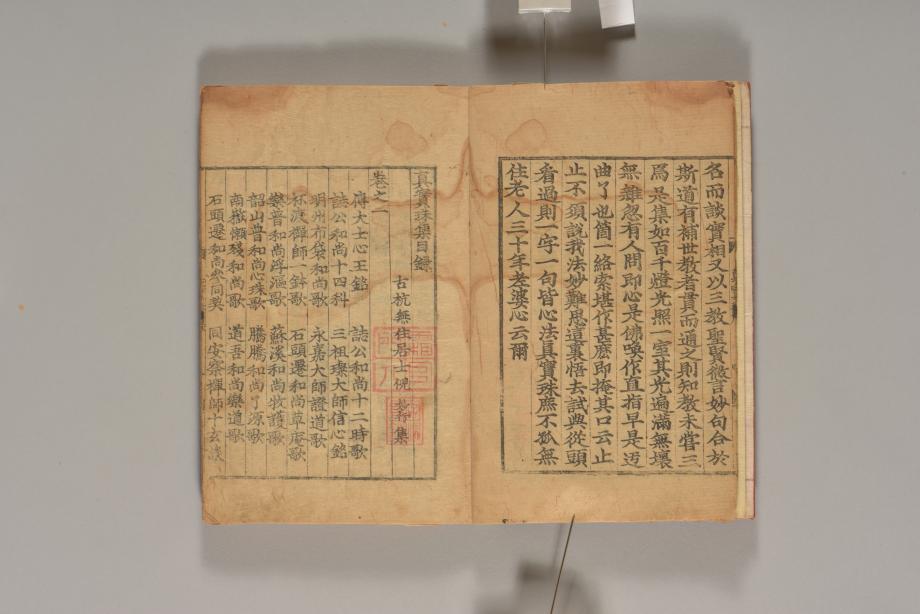 名而談實相又以三教聖賢微言妙句合於
斯道有補世教者貫而通之則知教未嘗三
爲是集如百千燈光照一室其光遍滿無壞
無雜忽有人問即心是佛喚作直指早是迃
曲了也箇一絡索堪作甚麽即掩其口云止
止不須說我法妙難思這裏悟去試與從頭
看過則一字一句皆心法眞實珠庶不孤無
住老人三十年老婆心云爾
眞實珠集目錄
古杭無住居士倪 集
卷之一
傅大士心王銘
誌公和尚十二時歌
誌公和尚十四科
三祖璨大師信心銘
明州布袋和尚歌
永嘉大師證道歌
杯渡禪師一鉢歌
石頭遷和尚草庵歌
樂普和尚浮漚歌
蘇溪和尚牧護歌
韶山普和尚心珠歌
騰騰和尚了源歌
南嶽懶殘和尚歌
道吾和尚樂道歌
石頭遷和尚參同契
同安察禪師十玄談